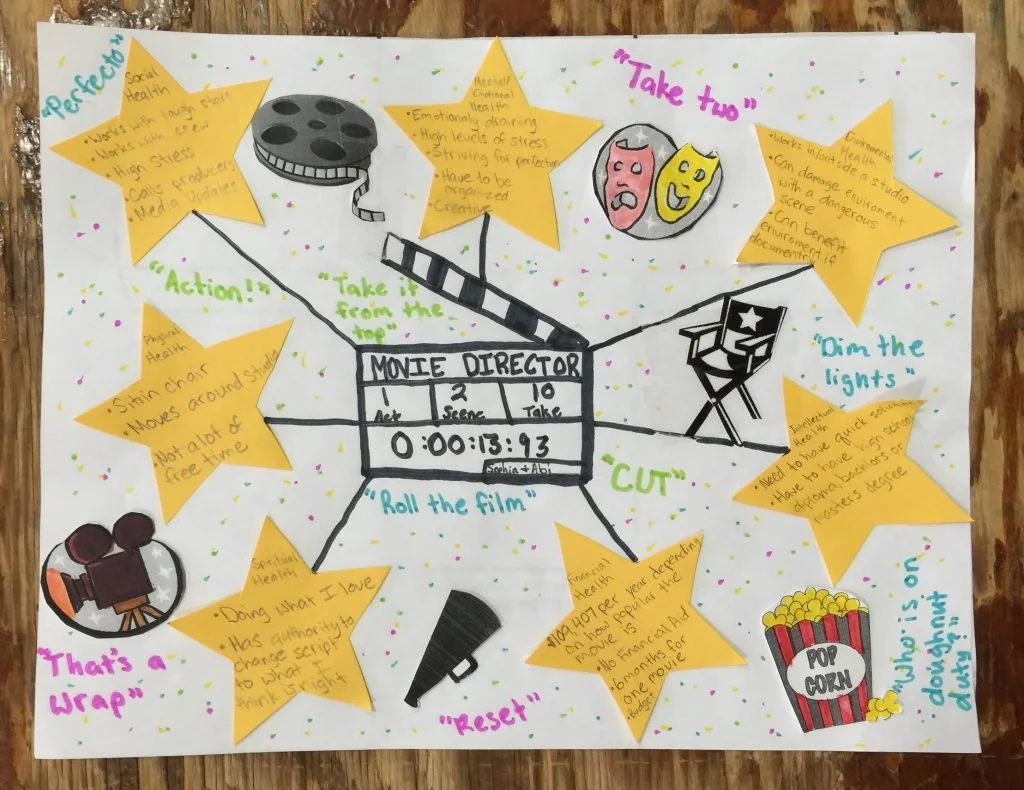 "Perfecto"
Social
Health
• Works with tough short
• Works with crew
• High Stress
• Calls producer
• Media updates
Mental/
Emotional
Health
• Emotionally draining
• High levels of stress
• Striving for perfection
• Have to be
organized
• Creative
"Take two"
Enviromental
Health
• Works in/outside a studio
• Can damage enviroment
with a dangerous
scene
• Can benefit
enviroment if
documentry
"Action!"
"Take it
from the
top"
Physical
Health
• Sit in chair
• Moves around studio
• Not a lot of
free time
MOVIE DIRECTOR
1
Act
2
Scene
10
Take
0:00:13:93
Sophia + Abi
"Dim the
lights"
Intellectual
Health
• Need to have quick solutions
• Have to have high school
diploma, bachlors or
masters degree
"Roll the film"
"CUT"
Spiritual
Health
• Doing what I love
• Has authority to
change script
to what I
think is right
Financial
Health
$109,407 per year depending
on how popular the
movie is
• No Financial Aid
• 6 months for
one movie
• Budget
"That's a
Wrap"
"Reset"
POP
CORN
"Who is on
doughnut
duty?"